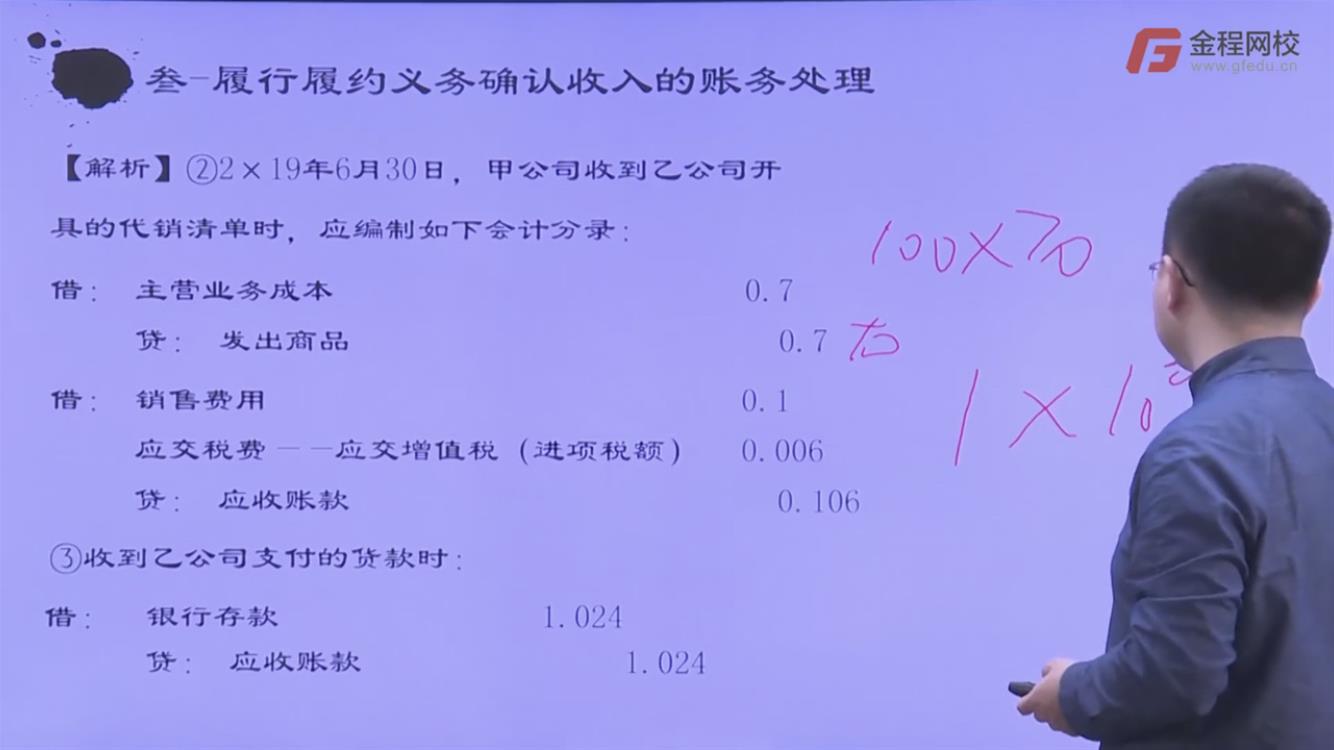 金程网校
www.gfedu.cn
叁-履行履约义务确认收入的账务处理
【解析】②2×19年6月30日，甲公司收到乙公司开
具的代销清单时，应编制如下会计分录：
借： 主营业务成本 0.7
贷： 发出商品 0.7 万
借： 销售费用 0.1
应交税费——应交增值税（进项税额） 0.006
贷： 应收账款 0.106
③收到乙公司支付的货款时：
借： 银行存款 1.024
贷： 应收账款 1.024
100×70
1×10